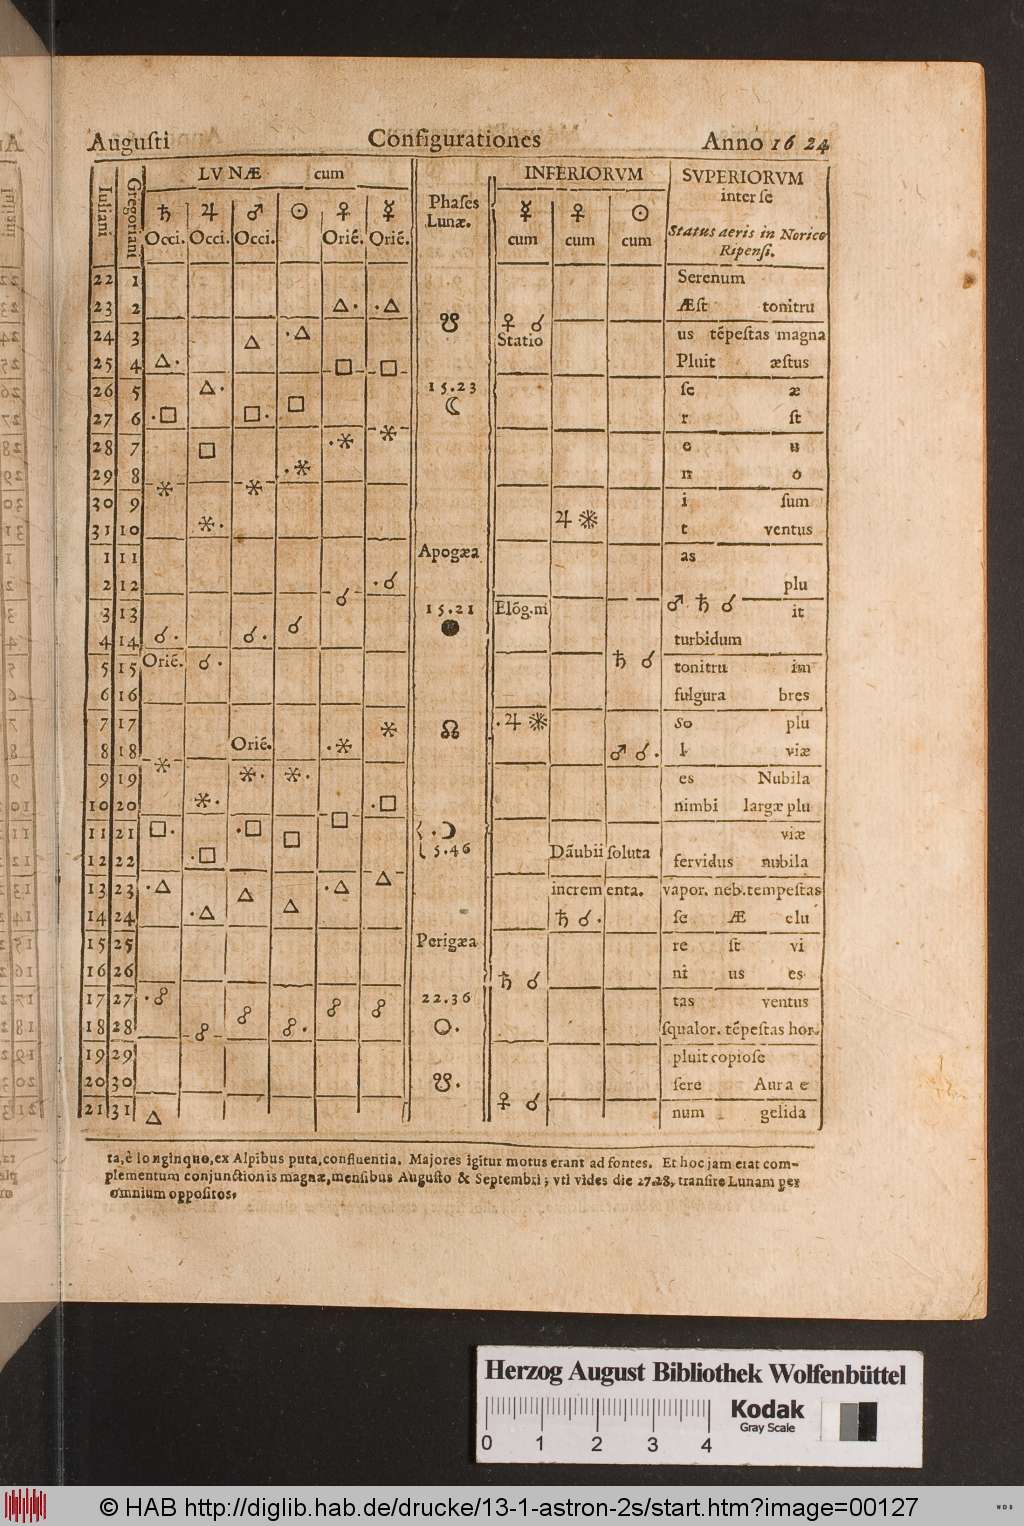 Augusti Configurationes Anno 1624
LVNÆ cum INFERIORVM SVPERIORVM
inter se
Iuliani Gregoriani ♄ ♃ ♂ ☉ ♀ ☿ Phases ☿ ♀ ☉
Lunæ.
Occi. Occi. Occi. Oriē. Oriē. cum cum cum Status aeris in Norico
Ripensi.
22 1 Serenum
23 2 △. .△ Æst tonitru
24 3 △ .△ ☋ ♀ ☌ Statio us tēpestas magna
25 4 △. □ □ Pluit æstus
26 5 △. □ 15.23 se æ
27 6 .□ □. ☾ r st
28 7 □ .⚹ ⚹ e u
29 8 ⚹ ⚹ .⚹ n o
30 9 i sum
31 10 ⚹. ♃ ⚹ t ventus
1 11 Apogæa as
2 12 ☌ .☌ plu
3 13 ☌ 15.21 Elōg.m ♂ ♄ ☌ it
4 14 ☌. ☌. ● turbidum
5 15 Oriē. ☌. ♄ ☌ tonitru im
6 16 fulgura bres
7 17 ⚹ ☊ .♃ ⚹ So plu
8 18 ⚹ Oriē. .⚹ ♂ ☌. l viæ
9 19 ⚹. ⚹. es Nubila
10 20 ⚹. □ .□ nimbi largæ plu
11 21 □. .□ □ .☽ viæ
12 22 .□ 5.46 Dāubii soluta fervidus nubila
13 23 .△ △ .△ △ incrementa. vapor. neb. tempestas
14 24 .△ △ ♄ ☌. se Æ elu
15 25 Perigæa re st vi
16 26 ♄ ☌ ni us es
17 27 .☍ ☍ ☍ ☍ 22.36 tas ventus
18 28 ☍ ☍. ○. squalor. tēpestas hor.
19 29 pluit copiose
20 30 ☋. sere Aura e
21 31 △ ♀ ☌ num gelida
ta, è longinquo, ex Alpibus puta, confluentia. Majores igitur motus erant ad fontes. Et hoc jam erat com-
plementum conjunctionis magnæ, mensibus Augusto & Septembri; vti vides die 27.28, transire Lunam per
omnium oppositos,
Herzog August Bibliothek Wolfenbüttel
Kodak
Gray Scale
0 1 2 3 4
© HAB http://diglib.hab.de/drucke/13-1-astron-2s/start.htm?image=00127